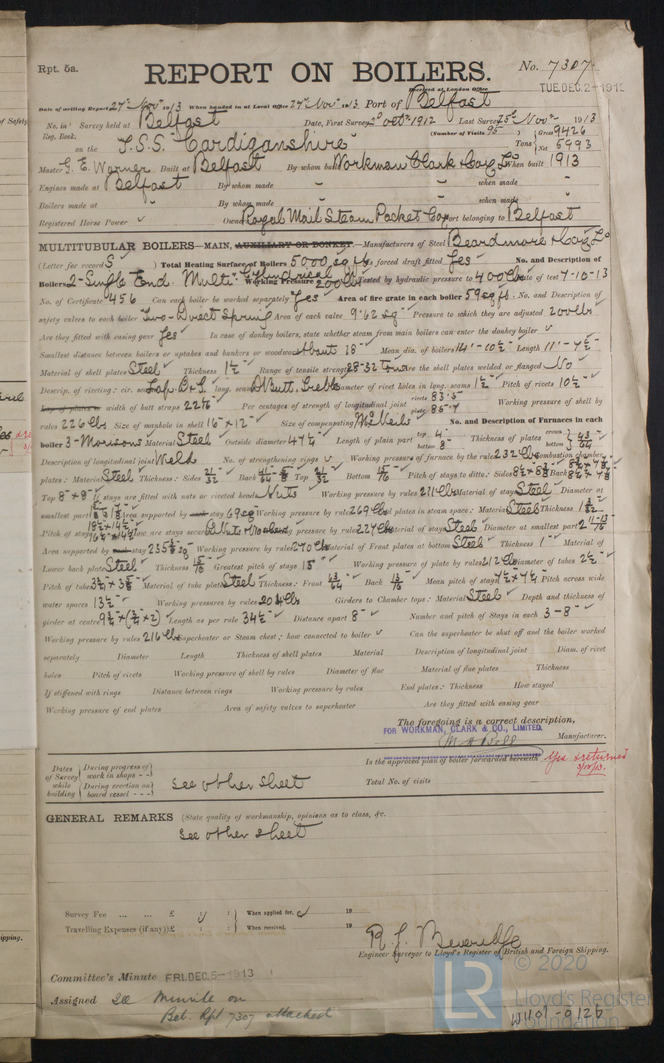 Rpt. 5a.
REPORT ON BOILERS.
No. 7307
Received at London Office
TUE. DEC. 2-1913
Date of writing Report 27th Nov 1913 When handed in at Local Office 27th Nov 1913 Port of Belfast
No. in Survey held at Belfast Date, First Survey 2d Oct 1912 Last Survey 25th Nov 1913
Reg. Book.
(Number of Visits 95)
on the T.S.S. Cardiganshire Tons Gross 9426 Net 5993
Master G. E. Warner Built at Belfast By whom built Workman Clark & Co Ld When built 1913
Engines made at Belfast By whom made " when made "
Boilers made at " By whom made " when made "
Registered Horse Power Owners Royal Mail Steam Packet Co Port belonging to Belfast
MULTITUBULAR BOILERS—MAIN, AUXILIARY OR DONKEY.—Manufacturers of Steel Beardmore & Co Ld
(Letter for record S) Total Heating Surface of Boilers 5000 sq ft Is forced draft fitted Yes No. and Description of
Boilers 2-Single End. Multi. Cylindrical Working Pressure 200 lbs Tested by hydraulic pressure to 400 lbs Date of test 7-10-13
No. of Certificate 456 Can each boiler be worked separately Yes Area of fire grate in each boiler 59 sq ft No. and Description of
safety valves to each boiler Two-Direct Spring Area of each valve 9.62 sq" Pressure to which they are adjusted 200 lbs
Are they fitted with easing gear Yes In case of donkey boilers, state whether steam from main boilers can enter the donkey boiler
Smallest distance between boilers or uptakes and bunkers or woodwork about 18" Mean dia. of boilers 14'-10½" Length 11'-7½"
Material of shell plates Steel Thickness 1½ Range of tensile strength 28-32 tons Are the shell plates welded or flanged No
Descrip. of riveting: cir. seams Lap D.&S. long. seams D Butt. Treble Diameter of rivet holes in long. seams 1½" Pitch of rivets 10½"
Lap of plates or width of butt straps 22⅞ Per centages of strength of longitudinal joint rivets 83.5 plate 85.7 Working pressure of shell by
rules 226 lbs Size of manhole in shell 16"×12" Size of compensating McNeils No. and Description of Furnaces in each
boiler 3-Morisons Material Steel Outside diameter 47¼ Length of plain part top 4" bottom 8" Thickness of plates crown bottom
Description of longitudinal joint Weld No. of strengthening rings Working pressure of furnace by the rules 232 lbs Combustion chamber
plates: Material Steel Thickness: Sides 21/32 Back Top 21/32 Bottom 15/16 Pitch of stays to ditto: Sides Back
Top 8"×8" If stays are fitted with nuts or riveted heads Nuts Working pressure by rules 211 lbs Material of stays Steel Diameter at
smallest part Area supported by each stay 69 sq Working pressure by rules 269 lbs End plates in steam space: Material Steel Thickness
Pitch of stays How are stays secured D Nuts & Washers Working pressure by rules 227 lbs Material of stays Steel Diameter at smallest part
Area supported by each stay Working pressure by rules 240 lbs Material of Front plates at bottom Steel Thickness 1" Material of
Lower back plate Steel Thickness 15/16 Greatest pitch of stays 15" Working pressure of plate by rules 212 lbs Diameter of tubes 2½"
Pitch of tubes Material of tube plates Steel Thickness: Front Back Mean pitch of stays Pitch across wide
water spaces 13½" Working pressures by rules 204 lbs Girders to Chamber tops: Material Steel Depth and thickness of
girder at centre Length as per rule 34½ Distance apart 8" Number and pitch of Stays in each 3-8"
Working pressure by rules 216 lbs Superheater or Steam chest; how connected to boiler Can the superheater be shut off and the boiler worked
separately Diameter Length Thickness of shell plates Material Description of longitudinal joint Diam. of rivet
holes Pitch of rivets Working pressure of shell by rules Diameter of flue Material of flue plates Thickness
If stiffened with rings Distance between rings Working pressure by rules End plates: Thickness How stayed
Working pressure of end plates Area of safety valves to superheater Are they fitted with easing gear
The foregoing is a correct description,
FOR WORKMAN, CLARK & CO., LIMITED.
Manufacturer.
Dates of Survey while building
During progress of work in shops - -
During erection on board vessel - - -
See other sheet
Is the approved plan of boiler forwarded herewith Yes & returned
3/12/13.
Total No. of visits
GENERAL REMARKS (State quality of workmanship, opinions as to class, &c.
See other sheet
Survey Fee ... ... £ : : When applied for, 19
Travelling Expenses (if any) £ : : When received, 19
R. J. Beveridge
Engineer Surveyor to Lloyd's Register of British and Foreign Shipping.
Committee's Minute FRI. DEC. 5-1913
Assigned See Minute on
Bel. Rpt 7307 attached
© 2020
LR
Lloyd's Register
Foundation
W1101-0126